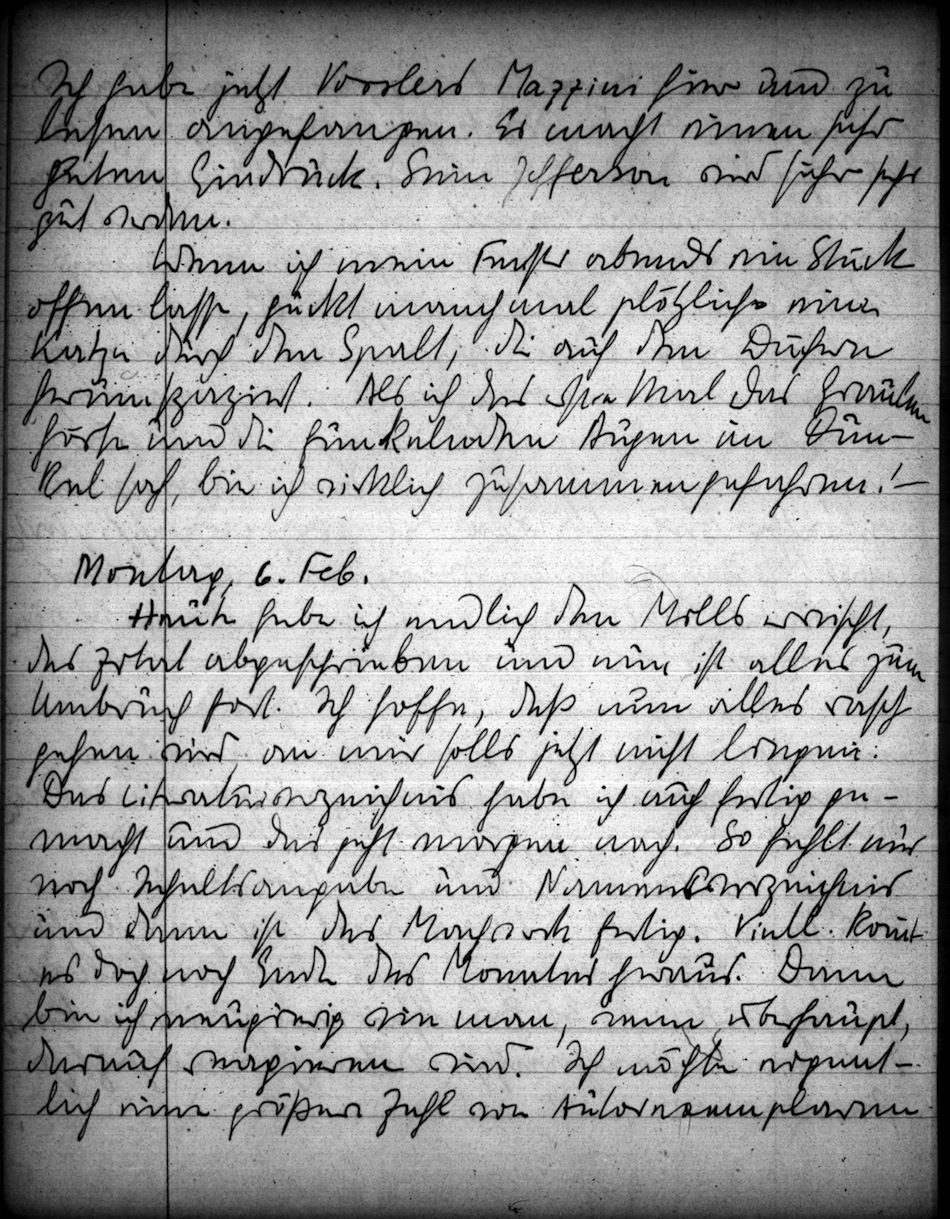 Ich habe jetzt Vosslers Mazzini hier und zu
lesen angefangen. Er macht einen sehr
guten Eindruck. Sein Jefferson wird sicher sehr
gut werden.
Wenn ich mein Fenster abends ein Stück
offen lasse, guckt manchmal plötzlich eine
Katze durch den Spalt, die auf den Dächern
herumspaziert. Als ich das erste Mal das Graulen
hörte und die funkelnden Augen im Dun-
kel sah, bin ich wirklich zusammengefahren! –
Montag, 6. Feb.
Heute habe ich endlich den Mills erwischt,
das Zitat abgeschrieben und nun ist alles zum
Umbruch fort. Ich hoffe, daß nun alles rasch
gehen wird, an mir solls jetzt nicht liegen.
Das Literaturverzeichnis habe ich auch fertig ge-
macht und das geht morgen nach. So fehlt nur
noch Inhaltsangabe und Namensverzeichnis
und dann ist das Machwerk fertig. Viell. komt
es doch noch Ende des Monates heraus. Dann
bin ich neugierig wie man, wenn überhaupt,
darauf reagieren wird. Ich möchte eigent-
lich eine größere Zahl von Autorenexemplaren